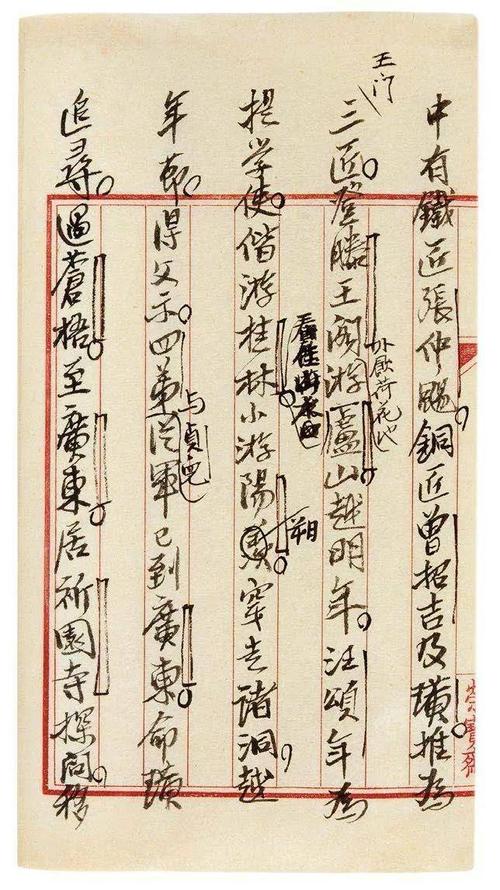 中有鐵匠張仲颺。銅匠曾招吉及璜推為
王门
三匠。登滕王閣游廬山越明年。汪頌年為
外飲荷花池
提学使。偕游桂林小游陽朔。穿走诸洞。越
年節。得父示。四弟从軍已到廣東。命璜
与贞吧
追尋。過蒼梧。至廣東。居祈園寺探问。移
榮寶齋